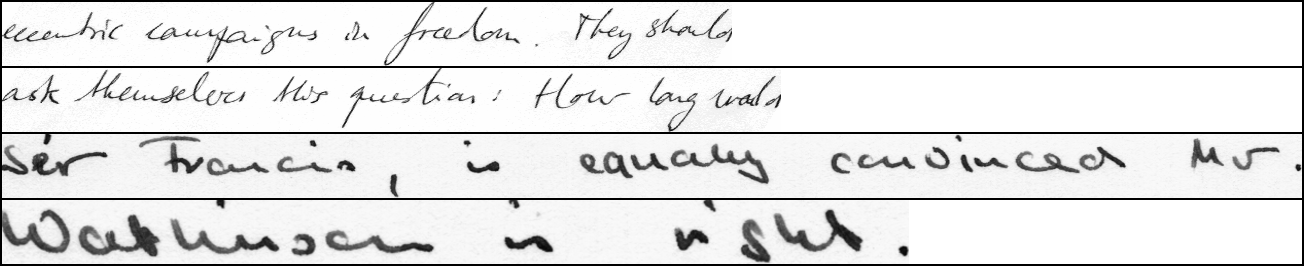 eccentric campaigns in freedom. They should
ask themselves this question: How long would
Sir Francis, is equally convinced Mr.
Watkinson is right.